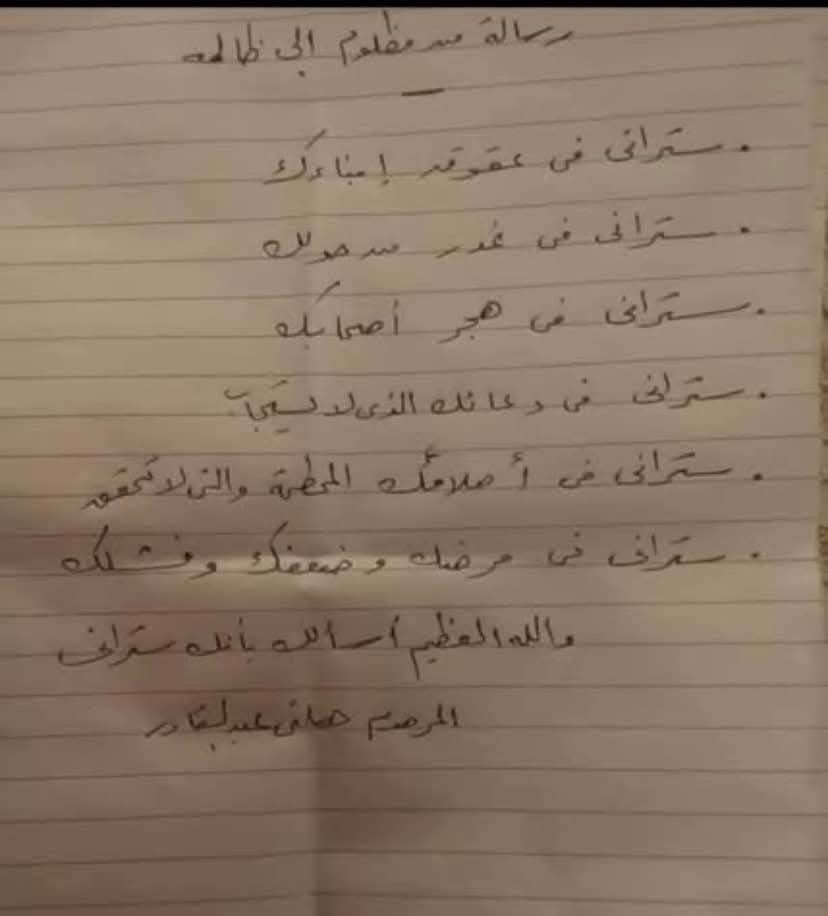 رسالة من مظلوم إلى ظالمه
. ستراني في عقوق إبناءك
. ستراني في غدر من حولك
. ستراني في هجر أصحابك
. ستراني في دعائك الذي لا يستجاب
. ستراني في أحلامك المحطمة والتي لا تتحقق
. ستراني في مرضك وضعفك وفشلك
والله العظيم أسألك بأنك ستراني
المرحوم عبدالقادر